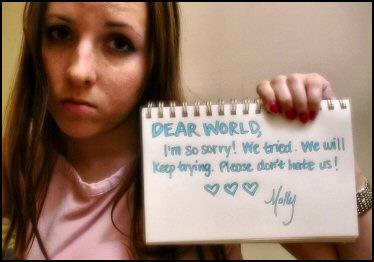 DEAR WORLD,
I'm so sorry! We tried. We will
Keep trying. Please don't hate us!
Molly